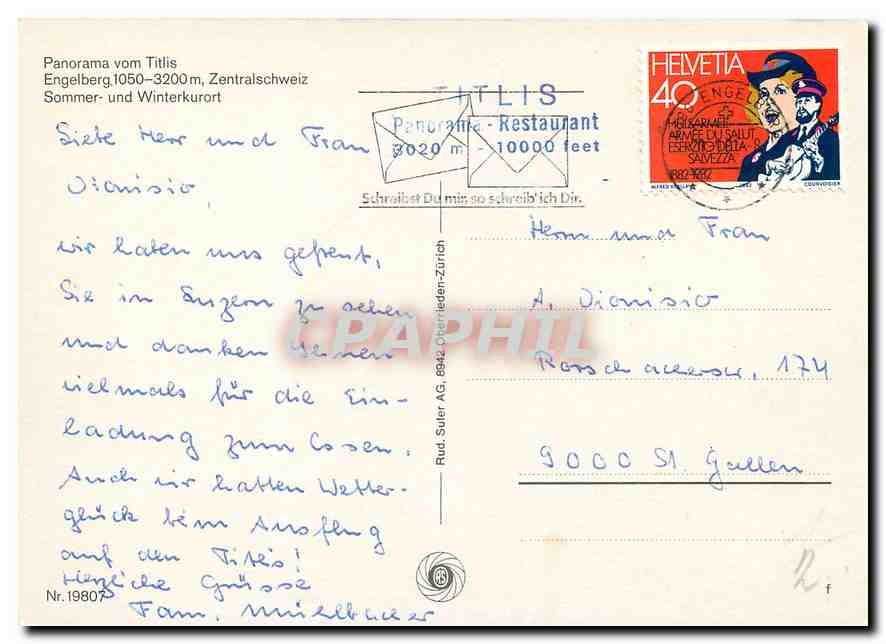 Panorama vom Titlis
Engelberg, 1050–3200 m, Zentralschweiz
Sommer- und Winterkurort
TITLIS
Panorama - Restaurant
3020 m - 10000 feet
Schreibst Du mir, so schreib' ich Dir.
HELVETIA
40
HEILSARMEE
ARMÉE DU SALUT
ESERCITO DELLA
SALVEZZA
1882-1982
COURVOISIER
ENGELB
Liebe Herr und Frau
Dionisio,
wir haben uns gefreut,
Sie in Luzern zu sehen
und danken Ihnen
vielmals für die Ein-
ladung zum Essen.
Auch wir hatten Wetter-
glück beim Ausflug
auf den Titlis!
Herzliche Grüsse
Fam. Mühlbacher
Nr. 19807
Rud. Suter AG, 8942 Oberrieden-Zürich
Herrn und Frau
A. Dionisio
Rorschacherstr. 174
9000 St. Gallen
2.
f
CPAPHIL